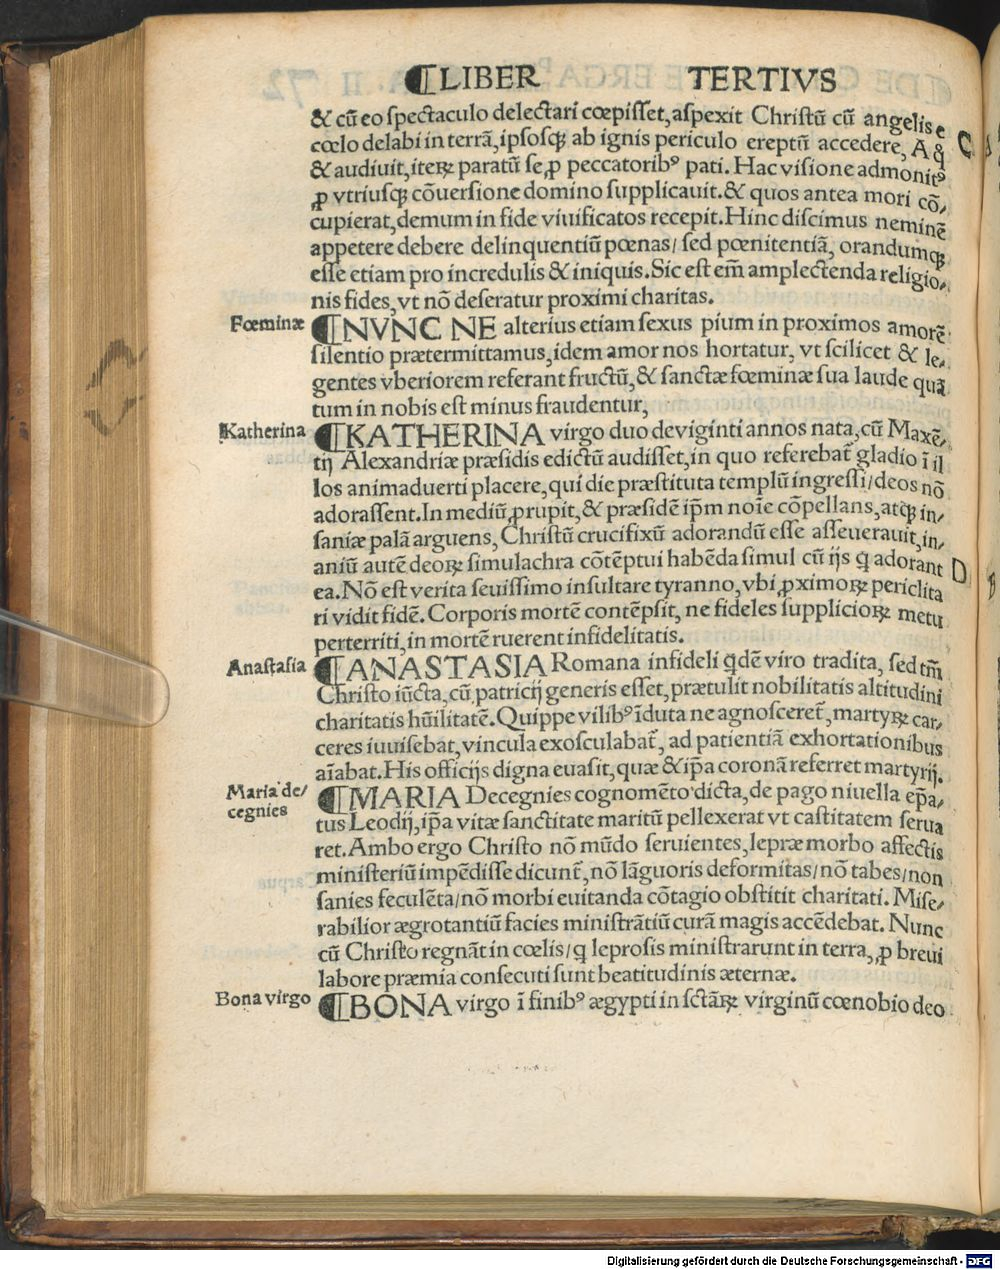 ¶LIBER TERTIVS
& cũ eo spectaculo delectari cœpisset, aspexit Christũ cũ angelis e
cœlo delabi in terrã, ipsosqꝫ ab ignis periculo ereptũ accedere, A q̃ C
& audiuit, iteꝝ paratũ se, ꝓ peccatoribꝰ pati. Hac visione admonitꝰ
ꝓ vtriusqꝫ cõuersione domino supplicauit. & quos antea mori cõ/
cupierat, demum in fide viuificatos recepit. Hinc discimus neminẽ
appetere debere delinquentiũ pœnas/ sed pœnitentiã, orandumqꝫ
esse etiam pro incredulis & iniquis. Sic est em̃ amplectenda religio/
nis fides, vt nõ deseratur proximi charitas.
Fœminæ ¶NVNC NE alterius etiam sexus pium in proximos amorẽ
silentio prætermittamus, idem amor nos hortatur, vt scilicet & le/
gentes vberiorem referant fructũ, & sanctæ fœminæ sua laude quã
tum in nobis est minus fraudentur,
Katherina ¶KATHERINA virgo duodeviginti annos nata, cũ Maxẽ/
tij Alexandriæ præsidis edictũ audisset, in quo referebat̃ gladio ĩ il
los animaduerti placere, qui die præstituta templũ ingressi/ deos nõ
adorassent. In mediũ ꝓrupit, & præsidẽ ip̃m noĩe cõpellans, atqꝫ in/
saniæ palã arguens, Christũ crucifixũ adorandũ esse asseuerauit, in/
aniũ autẽ deoꝝ simulachra cõtẽptui habẽda simul cũ ijs q̃ adorant D
ea. Nõ est verita seuissimo insultare tyranno, vbi ꝓximoꝝ periclita
ri vidit fidẽ. Corporis mortẽ contẽpsit, ne fideles supplicioꝝ metu
perterriti, in mortẽ ruerent infidelitatis.
Anastasia ¶ANASTASIA Romana infideli q̃dẽ viro tradita, sed tm̃
Christo iũcta, cũ patricij generis esset, prætulit nobilitatis altitudini
charitatis hũilitatẽ. Quippe vilibꝰ ĩduta ne agnosceret̃, martyꝝ car/
ceres iuuisebat, vincula exosculabat̃, ad patientiã exhortationibus
aĩabat. His officijs digna euasit, quæ & ip̃a coronã referret martyrij.
Maria de/
cegnies ¶MARIA Decegnies cognomẽto dicta, de pago niuella ep̃a/
tus Leodij, ip̃a vitæ sanctitate maritũ pellexerat vt castitatem serua
ret. Ambo ergo Christo nõ mũdo seruientes, lepræ morbo affectis
ministeriũ impẽdisse dicunt̃, nõ lãguoris deformitas/ nõ tabes/ non
sanies feculẽta/ nõ morbi euitanda cõtagio obstitit charitati. Mise/
rabilior ægrotantiũ facies ministrãtiũ curã magis accẽdebat. Nunc
cũ Christo regnãt in cœlis/ q̃ leprosis ministrarunt in terra, ꝓ breui
labore præmia consecuti sunt beatitudinis æternæ.
Bona virgo ¶BONA virgo ĩ finibꝰ ægypti in sctãꝝ virginũ cœnobio deo
Digitalisierung gefördert durch die Deutsche Forschungsgemeinschaft - DFG